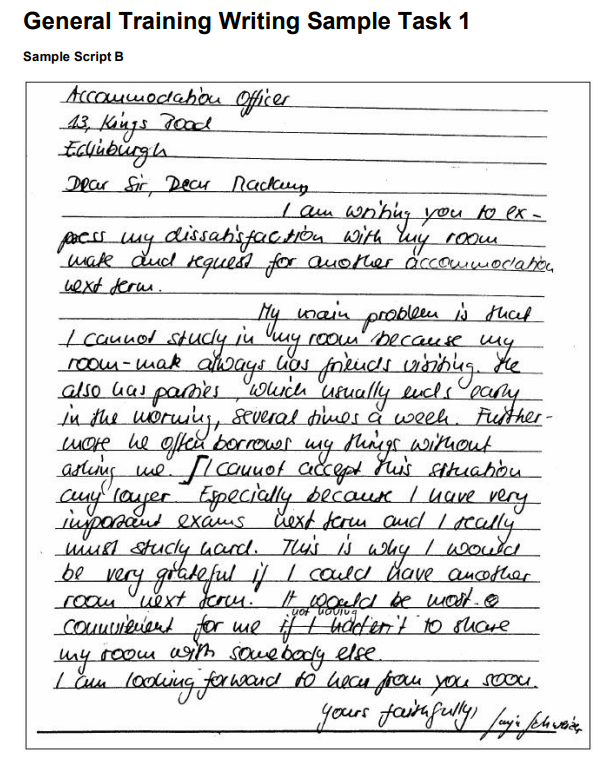 General Training Writing Sample Task 1
Sample Script B
Accommodation Officer
13, Kings Road
Edinburgh
Dear Sir, Dear Madam,
I am writing you to ex-
press my dissatisfaction with my room
mate and request for another accommodation
next term.
My main problem is that
I cannot study in my room because my
room-mate always has friends visiting. He
also has parties, which usually ends early
in the morning, several times a week. Further-
more he often borrows my things without
asking me. I cannot accept this situation
any longer Especially because I have very
important exams next term and I really
must study hard. This is why I would
be very grateful if I could have another
room next term. It would be most
not having
convinient for me if I hadn't to share
my room with somebody else.
I am looking forward to hear from you soon.
Yours faithfully,